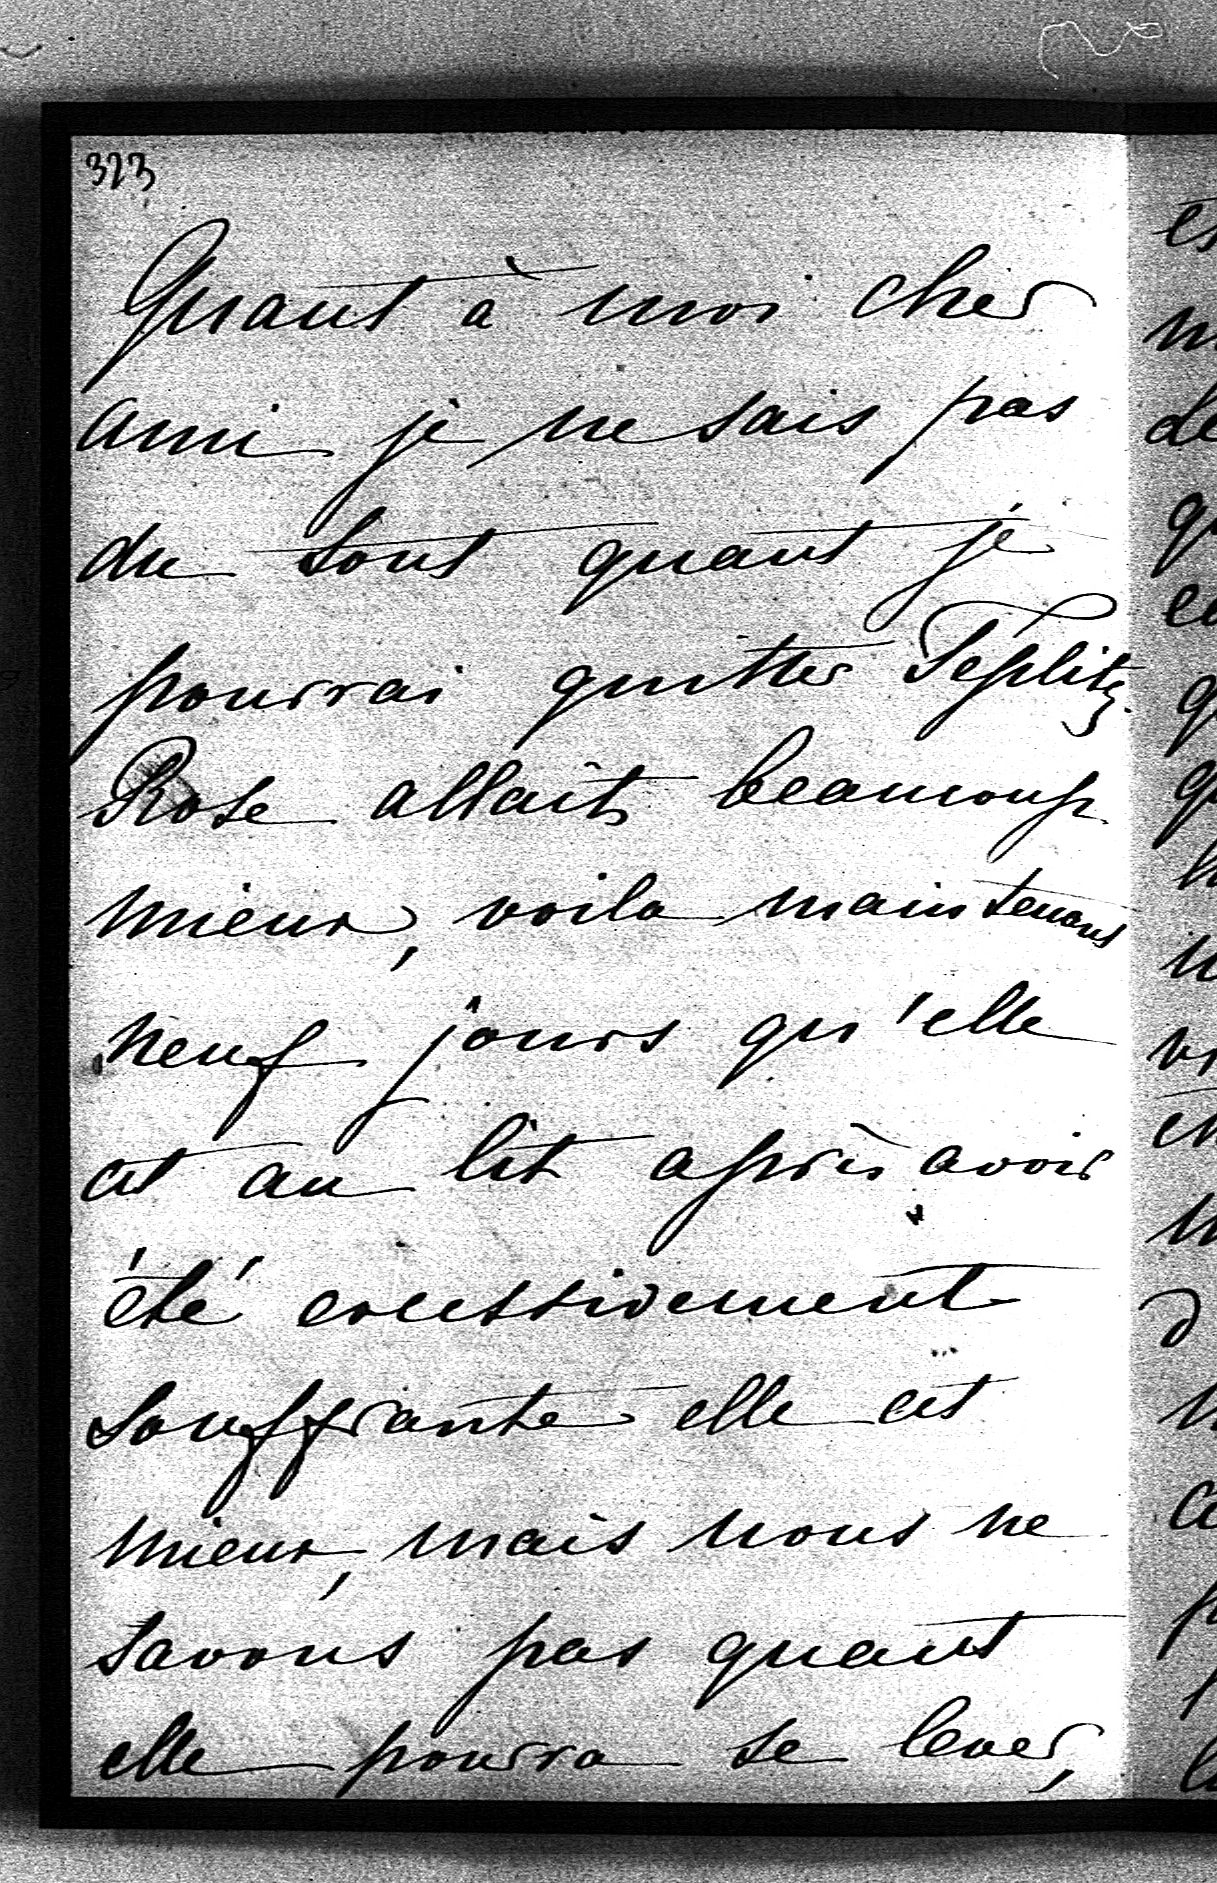 323
Quant à moi cher
ami je ne sais pas
du tout quant je
pourrai quitter Teplitz.
Rose allait beaucoup
mieux, voila maintenant
neuf jours qu'elle
est au lit après avoir
été excessivement
souffrante elle est
mieux, mais nous ne
savons pas quant
elle pourra se lever,